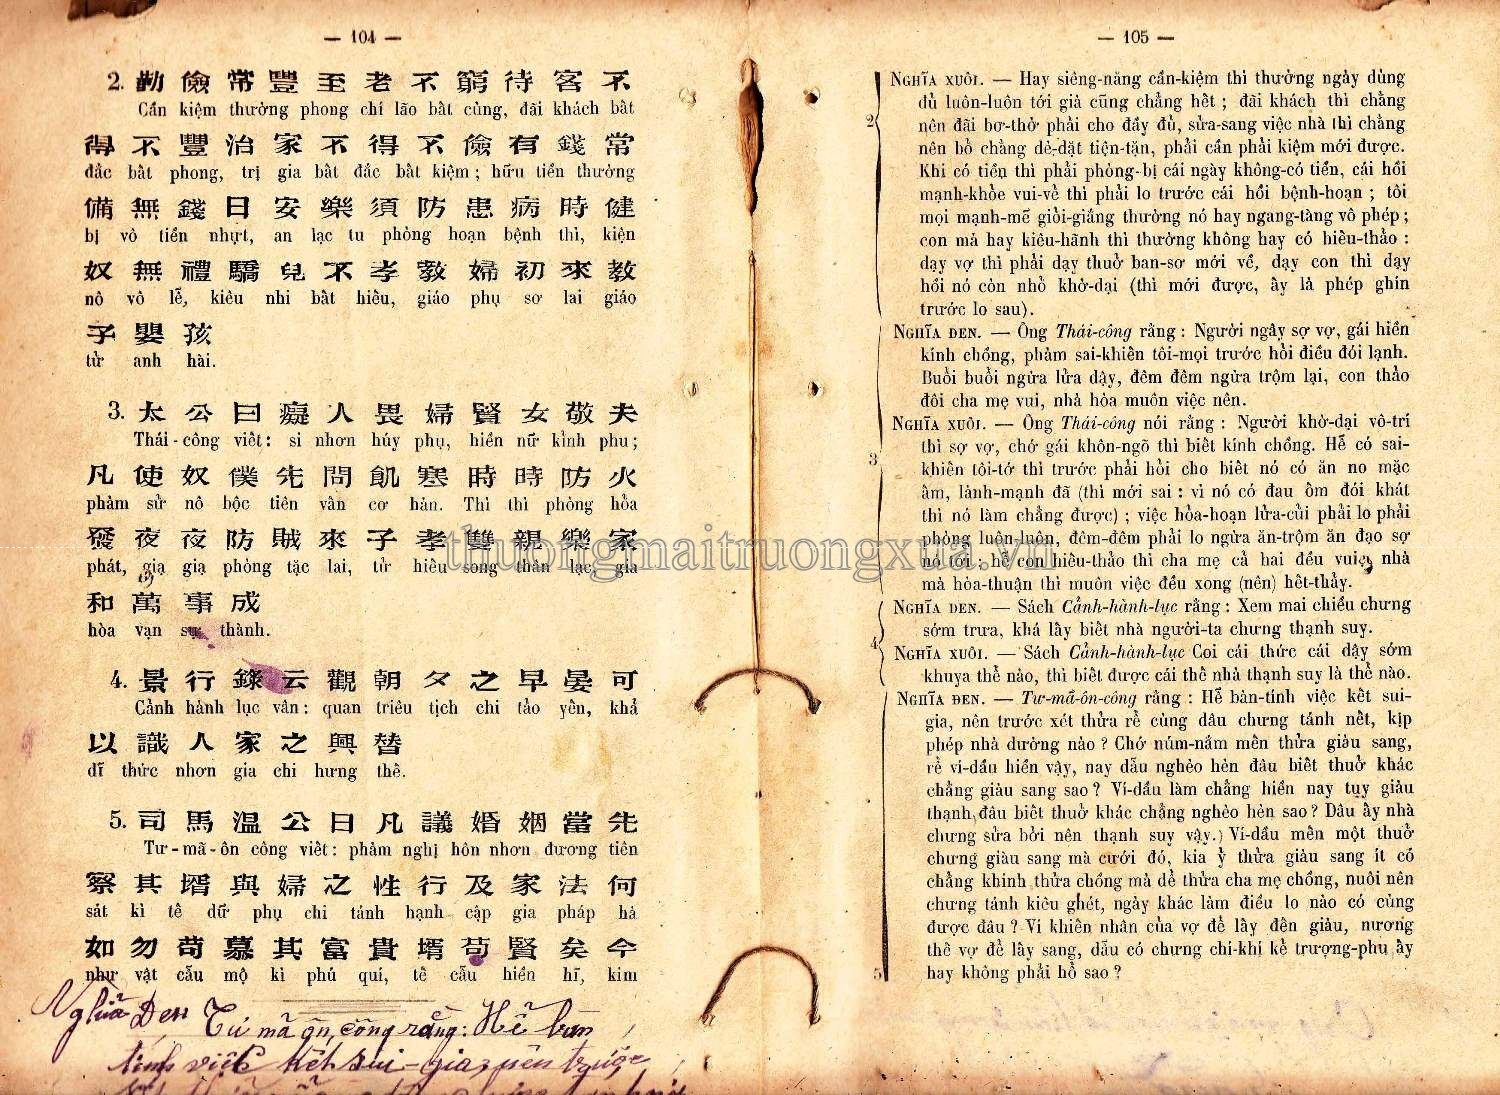 — 104 —
2. 勤儉常豐至老不窮待客不
Cần kiệm thường phong chí lão bất cùng, đãi khách bất
得不豐治家不得不儉有錢常
đắc bất phong, trị gia bất đắc bất kiệm ; hữu tiền thường
備無錢日安樂須防患病時健
bị vô tiền nhựt, an lạc tu phòng hoạn bệnh thì, kiện
奴無禮驕兒不孝教婦初來教
nô vô lễ, kiêu nhi bất hiếu, giáo phụ sơ lai giáo
子嬰孩
tử anh hài.
3. 太公曰癡人畏婦賢女敬夫
Thái-công viết : si nhơn húy phụ, hiền nữ kỉnh phu ;
凡使奴僕先問飢寒時時防火
phàm sử nô bộc tiên vấn cơ hàn. Thì thì phòng hỏa
發夜夜防賊來子孝雙親樂家
phát, dạ dạ phòng tặc lai, tử hiếu song thân lạc, gia
和萬事成
hòa vạn sự thành.
4. 景行錄云觀朝夕之早晏可
Cảnh hành lục vân : quan triêu tịch chi tảo yến, khả
以識人家之興替
dĩ thức nhơn gia chi hưng thế.
5. 司馬溫公曰凡議婚姻當先
Tư-mã-ôn công viết : phàm nghị hôn nhơn đương tiên
察其壻與婦之性行及家法何
sát kì tế dữ phụ chi tánh hạnh cập gia pháp hà
如勿苟慕其富貴壻苟賢矣今
như vật cẩu mộ kì phú quí, tế cẩu hiền hĩ, kim
Nghĩa Đen Tư mã ôn, công rằng : Hễ bàn
tính việc kết sui-gia, nên trước
— 105 —
NGHĨA XUÔI. — Hay siêng-năng cần-kiệm thì thường ngày dùng
đủ luôn-luôn tới già cũng chẳng hết ; đãi khách thì chẳng
nên đãi bơ-thờ phải cho đầy đủ, sửa-sang việc nhà thì chẳng
nên bỏ chẳng dè-dặt tiện-tặn, phải cần phải kiệm mới được.
2
Khi có tiền thì phải phòng-bị cái ngày không-có tiền, cái hồi
mạnh-khỏe vui-vẻ thì phải lo trước cái hồi bệnh-hoạn ; tôi
mọi mạnh-mẽ giỏi-giắng thường nó hay ngang-tàng vô phép ;
con mà hay kiêu-hãnh thì thường không hay có hiếu-thảo :
dạy vợ thì phải dạy thuở ban-sơ mới về, dạy con thì dạy
hồi nó còn nhỏ khờ-dại (thì mới được, ấy là phép ghìn
trước lo sau).
NGHĨA ĐEN. — Ông Thái-công rằng : Người ngây sợ vợ, gái hiền
kính chồng, phàm sai-khiến tôi-mọi trước hỏi điều đói lạnh.
Buổi buổi ngừa lửa dậy, đêm đêm ngừa trộm lại, con thảo
đôi cha mẹ vui, nhà hòa muôn việc nên.
NGHĨA XUÔI. — Ông Thái-công nói rằng : Người khờ-dại vô-trí
thì sợ vợ, chớ gái khôn-ngõ thì biết kính chồng. Hễ có sai-
3
khiến tôi-tớ thì trước phải hỏi cho biết nó có ăn no mặc
ấm, lành-mạnh đã (thì mới sai : vì nó có đau ốm đói khát
thì nó làm chẳng được) ; việc hỏa-hoạn lửa-củi phải lo phải
phòng luôn-luôn, đêm-đêm phải lo ngừa ăn-trộm ăn đạo sợ
nó tới ; hễ con hiếu-thảo thì cha mẹ cả hai đều vui, nhà
mà hòa-thuận thì muôn việc đều xong (nên) hết-thảy.
NGHĨA ĐEN. — Sách Cảnh-hành-lục rằng : Xem mai chiều chưng
sớm trưa, khá lấy biết nhà người-ta chưng thạnh suy.
4
NGHĨA XUÔI. — Sách Cảnh-hành-lục Coi cái thức cái dậy sớm
khuya thể nào, thì biết được cái thế nhà thạnh suy là thể nào.
NGHĨA ĐEN. — Tư-mã-ôn-công rằng : Hễ bàn-tính việc kết sui-
gia, nên trước xét thửa rể cùng dâu chưng tánh nết, kịp
phép nhà dường nào ? Chớ núm-nắm mến thửa giàu sang,
rể ví-dầu hiền vậy, nay dẫu nghèo hèn đâu biết thuở khác
chẳng giàu sang sao ? Ví-dầu làm chẳng hiền nay tuy giàu
thạnh, đâu biết thuở khác chẳng nghèo hèn sao ? Dâu ấy nhà
chưng sửa bởi nên thạnh suy vậy.) Ví-dầu mến một thuở
chưng giàu sang mà cưới đó, kia ỷ thửa giàu sang ít có
chẳng khinh thửa chồng mà dể thửa cha mẹ chồng, nuôi nên
chưng tánh kiêu ghét, ngày khác làm điều lo nào có cùng
được đâu ? Ví khiến nhân của vợ để lấy đến giàu, nương
thế vợ để lấy sang, dẫu có chưng chí-khí kẻ trượng-phu ấy
5
hay không phải hổ sao ?
thuongmaitruongxua.vn